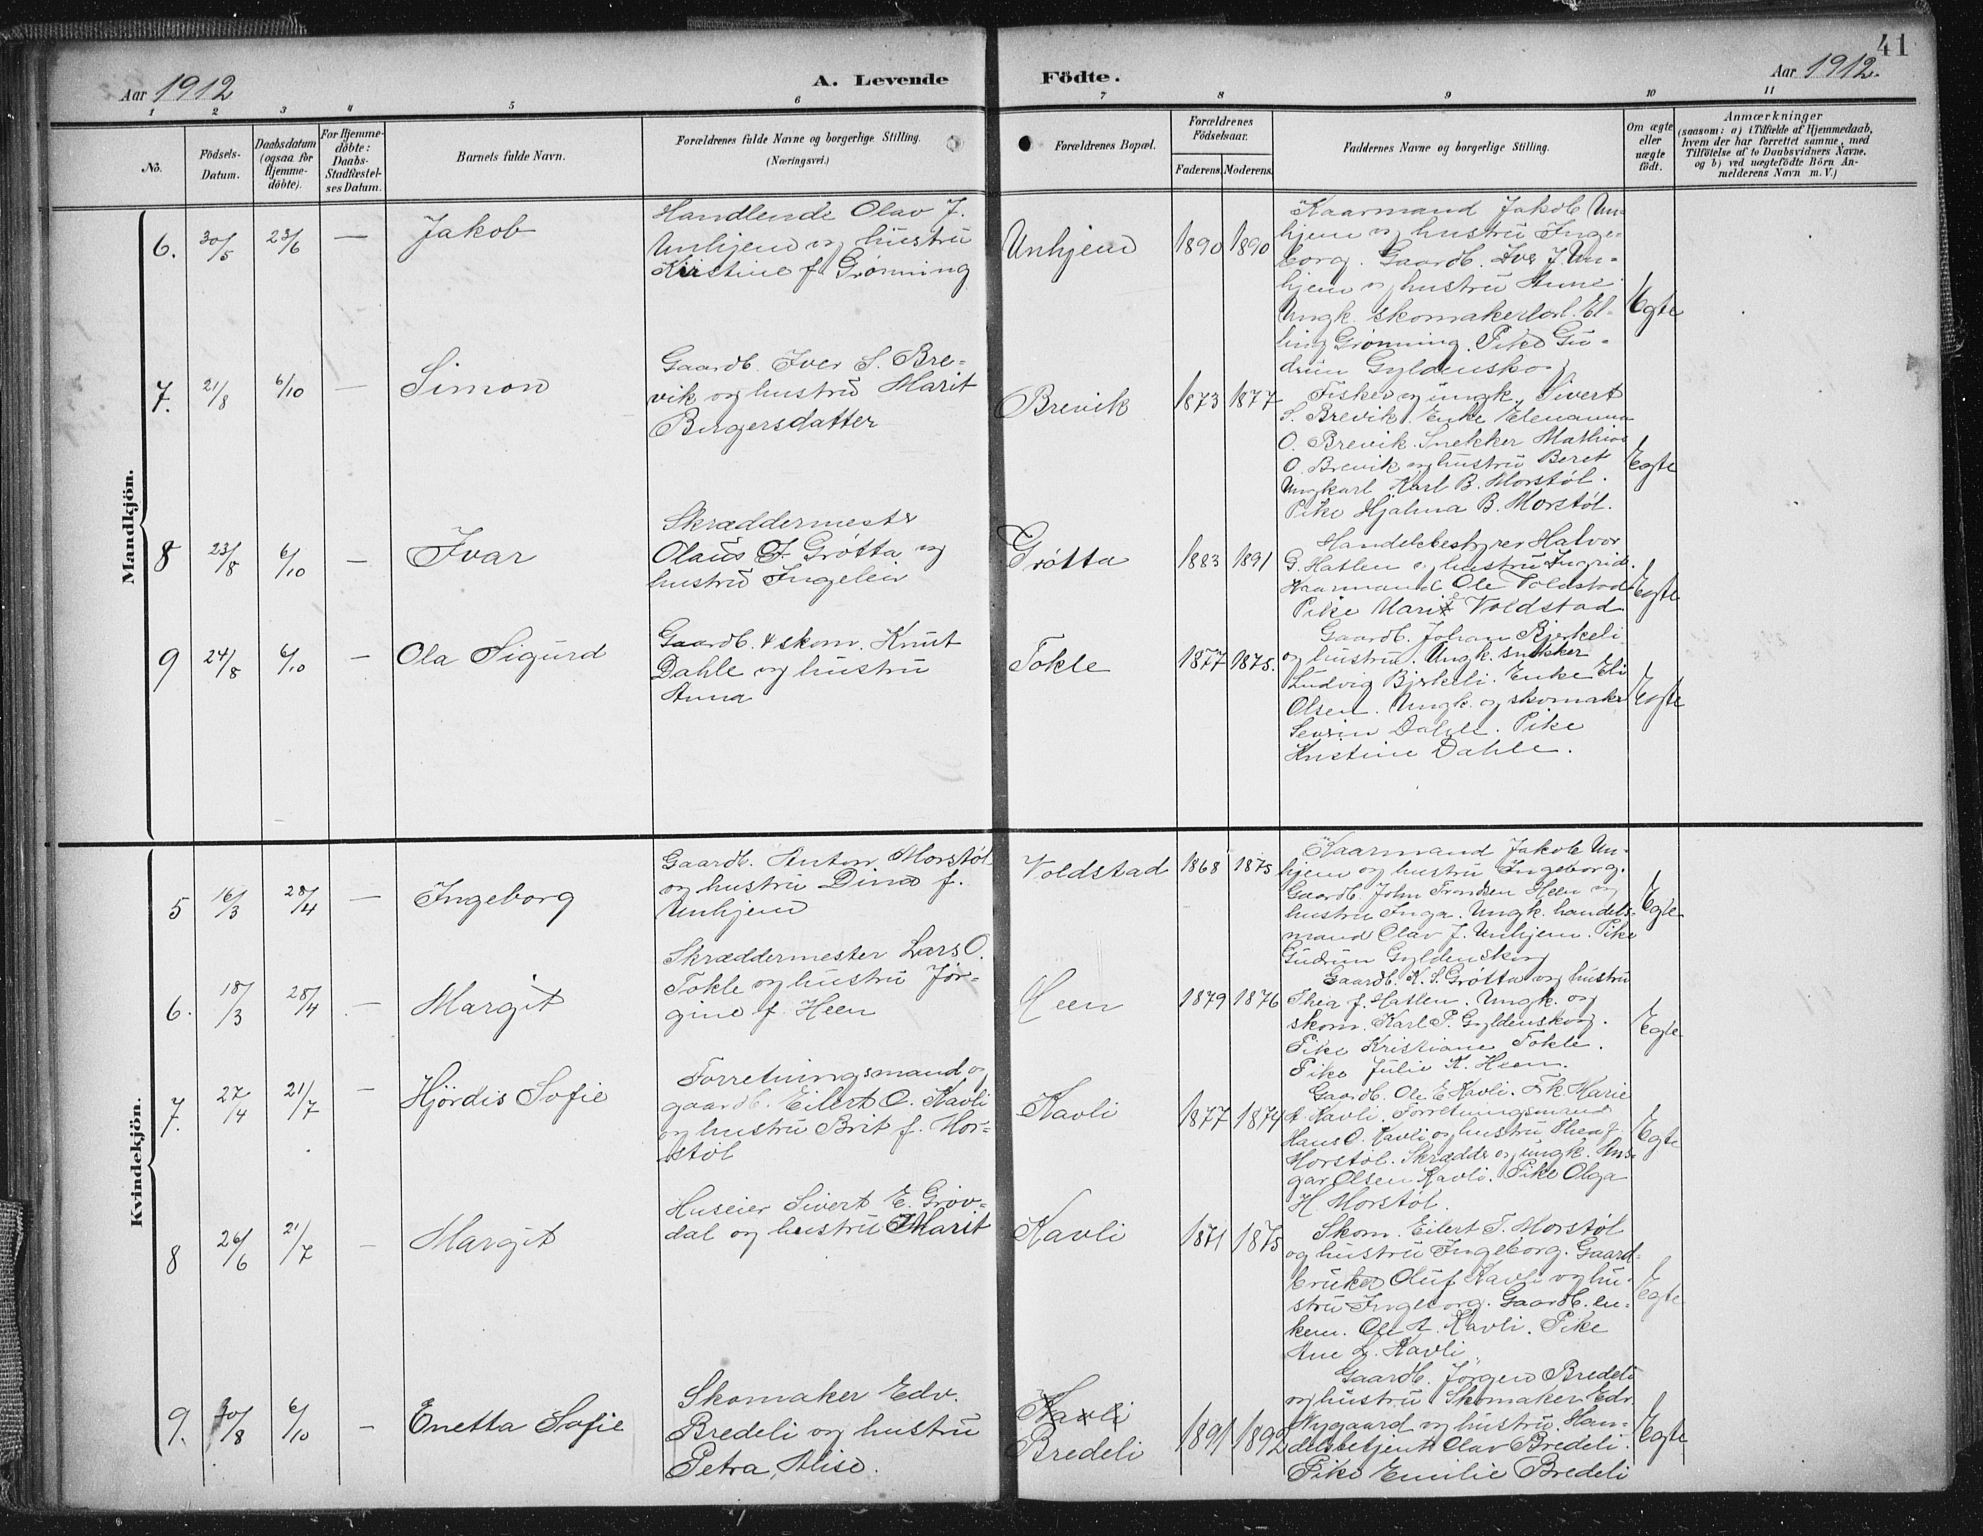 41
Aar 1912
A. Levende
Födte.
Aar 1912.
1 2 3 4 5 6 7 8 9 10 11
No.
Födsels-
Datum.
Daabsdatum
(ogsaa for
Hjemme-
döbte).
For Hjemme-
döbte:
Daabs-
Stadfæstel-
ses Datum.
Barnets fulde Navn.
Forældrenes fulde Navne og borgerlige Stilling.
(Næringsvei.)
Forældrenes Bopæl.
Forældrenes
Födselsaar.
Faderens. Moderens.
Faddernes Navne og borgerlige Stilling.
Om ægte
eller
uægte
födt.
Anmærkninger
(saasom: a) i Tilfælde af Hjemmedaab,
hvem der har forrettet samme, med
Tilföielse af to Daabsvidners Navne.
og b) ved uægtefödte Börn An-
melderens Navn m. V.)
Mandkjön.
6. 30/5 23/6 — Jakob
Handlende Olav J.
Unhjem og hustru
Kirstine f. Grønning
Unhjem 1890 1890
Kaarmand Jakob Un-
hjem og hustru Inge-
borg. Gaardb. Iver J. Un-
hjem og hustru Anne
Ungk. skomakerlærl. El-
ling Grønning. Pike Gu-
drun Gyldenskog
Egte
7. 21/8 6/10 — Simon
Gaardb. Iver S. Bre-
vik og hustru Marit
Birgersdatter
Brevik 1873 1877
Fisker og ungk. Sivert
S. Brevik. Enke Elenanna
O. Brevik. Snekker Mathias
O. Brevik og hustru Beret
Ungkarl Karl B. Morstøl.
Pike Hjalma B. Morstøl.
Egte
8 23/8 6/10 — Ivar
Skræddermester
Olaus J. Grøtta og
hustru Ingelein
Grøtta 1883 1891
Handelsbestyrer Halvor
G. Hatlen og hustru Ingrid.
Kaarmand Ole Voldstad
Pike Marit Voldstad
Egte
9 24/8 6/10 — Ola Sigurd
Gaardb. & skom. Knut
Dahle og hustru
Anna
Tokle 1877 1875.
Gaardb. Johan Bjerkeli
og hustru. Ungk. snekker
Ludvig Bjerkeli. Enke Eli
Olsen. Ungk. og skomaker
Severin Dahle. Pike
Kristine Dahle.
Egte
Kvindekjön.
5 16/3 28/4 — Ingeborg
Gaardb. Anton Morstøl
og hustru Dina f.
Unhjem
Voldstad 1868 1875
Kaarmand Jakob Un-
hjem og hustru Ingeborg.
Gaardb. John Trondsen Heen og
hustru Inga. Ungk. handels-
mand Olav J. Unhjem. Pike
Gudrun Gyldenskog
Egte
6. 18/3 28/4 — Margit
Skræddermester Lars O.
Tokle og hustru Jør-
gine f. Heen
Heen 1879 1876
Gaardb. K. S. Grøtta og hustru
Thea f. Hatlen. Ungk. og
skom. Karl P. Gyldenskog.
Pike Kristiane Tokle.
Pike Julie K. Heen.
Egte
7. 27/4 21/7 — Hjördis Sofie
Forretningsmand og
gaardb. Eilert O. Kavli
og hustru Brit f. Mor-
støl
Kavli 1877 1874
Gaardb. Ole E Kavli. Fk. Marie
A. Kavli. Forretningsmand
Hans O. Kavli og hustru Thea f.
Morstøl. Skrædder og ungk. Ans-
gar Olsen Kavli. Pike Olga
H. Morstøl.
Egte
8 26/6 21/7 — Margit
Huseier Sivert E. Grøv-
dal og hustru Marit
Kavli 1871 1875
Skom. Eilert T. Morstøl
og hustru Ingeborg. Gaard-
bruker Oluf Kavli og hu-
stru Ingeborg. Gaardb. en-
kem. Ole A. Kavli. Pike
Ane L. Kavli
Egte
9. 30/8 6/10 — Enetta Sofie
Skomaker Edv.
Bredeli og hustru
Petra Alise.
Kavli
Bredeli 1891 1892
Gaardb. Jörgen Bredeli
og hustru Skomaker Edv
Nygaard og hustru. Han-
delsbetjent Olav Bredeli.
Pike Emilie Bredeli
Egte